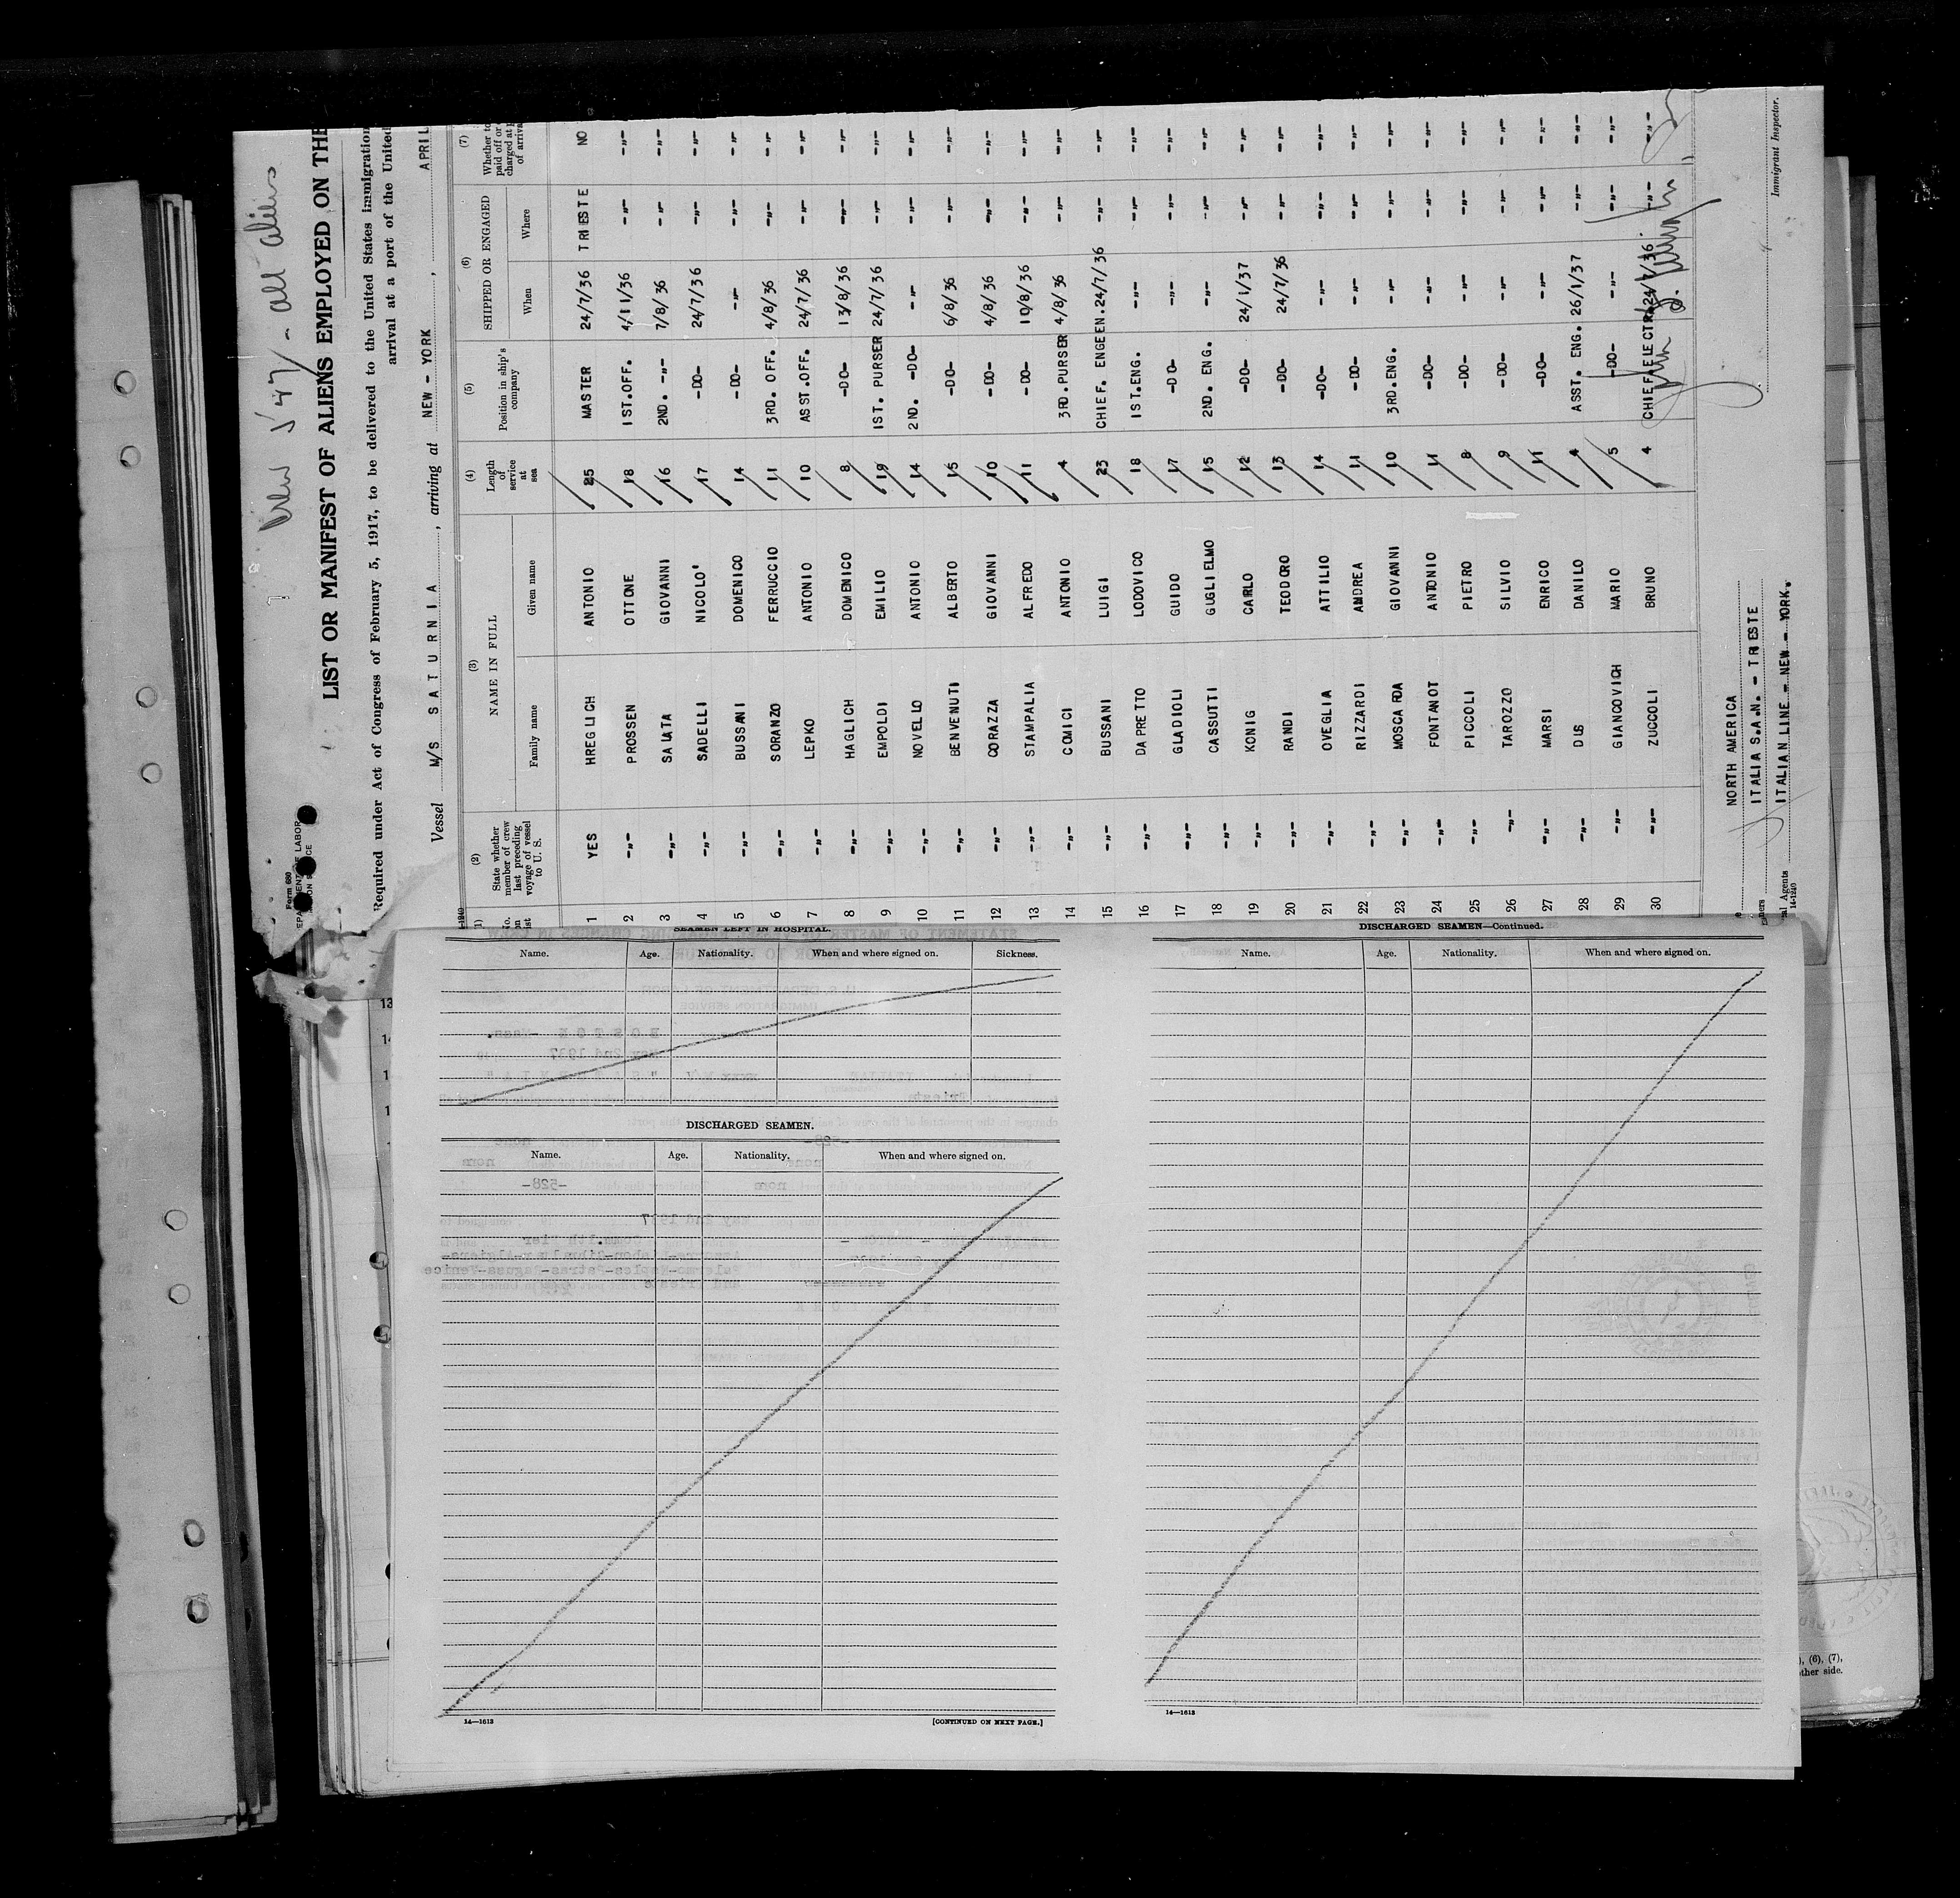 Crew 547 - all aliens
Form 680
LIST OR MANIFEST OF ALIENS EMPLOYED ON THE
Required under Act of Congress of February 5, 1917, to be delivered to the United States Immigration
arrival at a port of the United
Vessel M/S SATURNIA , arriving at NEW - YORK , APRIL
(2) (3) (4) (5) (6) (7)
State whether member of crew last preceding voyage of vessel to U. S.
NAME IN FULL
Family name Given name
Length of service at sea
Position in ship's company
SHIPPED OR ENGAGED
When Where
1 YES HREGLICH ANTONIO 25 MASTER 24/7/36 TRIESTE NO
2 -"- PROSSEN OTTONE 18 1ST.OFF. 4/1/36 -"- -"-
3 -"- SALATA GIOVANNI 16 2ND. -"- 7/8/36 -"- -"-
4 -"- SADELLI NICOLO' 17 -DO- 24/7/36 -"- -"-
5 -"- BUSSANI DOMENICO 14 -DO- -"- -"- -"-
6 -"- SORANZO FERRUCCIO 11 3RD. OFF. 4/8/36 -"- -"-
7 -"- LEPKO ANTONIO 10 ASST.OFF. 24/7/36 -"- -"-
8 -"- HAGLICH DOMENICO 8 -DO- 13/8/36 -"- -"-
9 -"- EMPOLDI EMILIO 19 1ST. PURSER 24/7/36 -"- -"-
10 -"- NOVELLO ANTONIO 14 2ND. -DO- -"- -"- -"-
11 -"- BENVENUTI ALBERTO 15 -DO- 6/8/36 -"- -"-
12 -"- CORAZZA GIOVANNI 10 -DO- 4/8/36 -"- -"-
13 -"- STAMPALIA ALFREDO 11 -DO- 10/8/36 -"- -"-
14 -"- COMICI ANTONIO 4 3RD.PURSER 4/8/36 -"- -"-
15 -"- BUSSANI LUIGI 23 CHIEF. ENGEEN. 24/7/36 -"- -"-
16 -"- DAPRETTO LODOVICO 18 1ST.ENG. -"- -"- -"-
17 -"- GLADIOLI GUIDO 17 -DO- -"- -"- -"-
18 -"- CASSUTTI GUGLIELMO 15 2ND. ENG. -"- -"- -"-
19 -"- KONIG CARLO 12 -DO- 24/1/37 -"- -"-
20 -"- RANDI TEODORO 13 -DO- 24/7/36 -"- -"-
21 -"- OVEGLIA ATTILIO 14 -DO- -"- -"- -"-
22 -"- RIZZARDI ANDREA 11 -DO- -"- -"- -"-
23 -"- MOSCARDA GIOVANNI 10 3RD.ENG. -"- -"- -"-
24 -"- FONTANOT ANTONIO 11 -DO- -"- -"- -"-
25 -"- PICCOLI PIETRO 8 -DO- -"- -"- -"-
26 -"- TAROZZO SILVIO 9 -DO- -"- -"- -"-
27 -"- MARSI ENRICO 11 -DO- -"- -"- -"-
28 -"- DUS DANILO 4 ASST. ENG. 26/1/37 -"- -"-
29 -"- GIANCOVICH MARIO 5 -DO- -"- -"- -"-
30 -"- ZUCCOLI BRUNO 4 CHIEF ELECTR. 24/7/36 -"- -"-
NORTH AMERICA
ITALIA S.A.N. - TRIESTE
ITALIAN LINE - NEW - YORK.
Immigrant Inspector.
14-1240
SEAMEN LEFT IN HOSPITAL.
Name. Age. Nationality. When and where signed on. Sickness.
DISCHARGED SEAMEN.
Name. Age. Nationality. When and where signed on.
14—1613 [CONTINUED ON NEXT PAGE.]
DISCHARGED SEAMEN—Continued.
Name. Age. Nationality. When and where signed on.
14—1613
(6), (7),
other side.